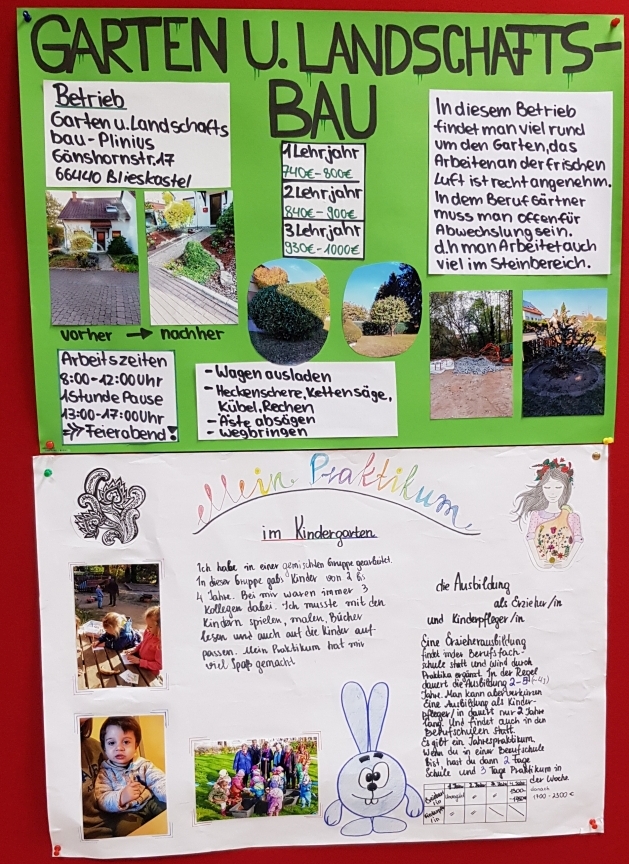 GARTEN U. LANDSCHAFTS-
BAU
Betrieb
Garten u. Landschafts
bau-Plinius
Gänshornstr.17
66440 Blieskastel
1 Lehrjahr
740€-800€
2 Lehrjahr
840€-900€
3 Lehrjahr
930€-1000€
In diesem Betrieb
findet man viel rund
um den Garten, das
Arbeiten an der frischen
Luft ist recht angenehm.
In dem Beruf Gärtner
muss man offen für
Abwechslung sein.
d.h man Arbeitet auch
viel im Steinbereich.
vorher → nachher
Arbeitszeiten
8:00-12:00 Uhr
1 Stunde Pause
13:00-17:00 Uhr
Feierabend!
- Wagen ausladen
- Heckenschere, Kettensäge,
Kübel, Rechen
- Äste absägen
- wegbringen
Mein Praktikum
im Kindergarten
Ich habe in einer gemischten Gruppe gearbeitet.
In dieser Gruppe gabs Kinder von 2 bis
4 Jahre. Bei mir waren immer 3
Kollegen dabei. Ich musste mit den
Kindern spielen, malen, Bücher
lesen und auch auf die Kinder auf-
passen. Mein Praktikum hat mir
viel Spaß gemacht
die Ausbildung
als Erzieher/in
und Kinderpfleger/in
Eine Erzieherausbildung
findet in der Berufsfach-
schule statt und wird durch
Praktika ergänzt. In der Regel
dauert die Ausbildung 2-5
Jahre. Man kann aber verkürzen
Eine Ausbildung als Kinder-
pfleger/in dauert nur 2 Jahre
lang. Und findet auch in den
Berufschulen statt.
Es gibt ein Jahrespraktikum.
Wenn du in einer Berufschule
bist, hast du dann 2 tage
Schule und 3 Tage Praktikum in
der Woche
1 Jahr 2 Jahr 3 Jahr 4 Jahr
danach